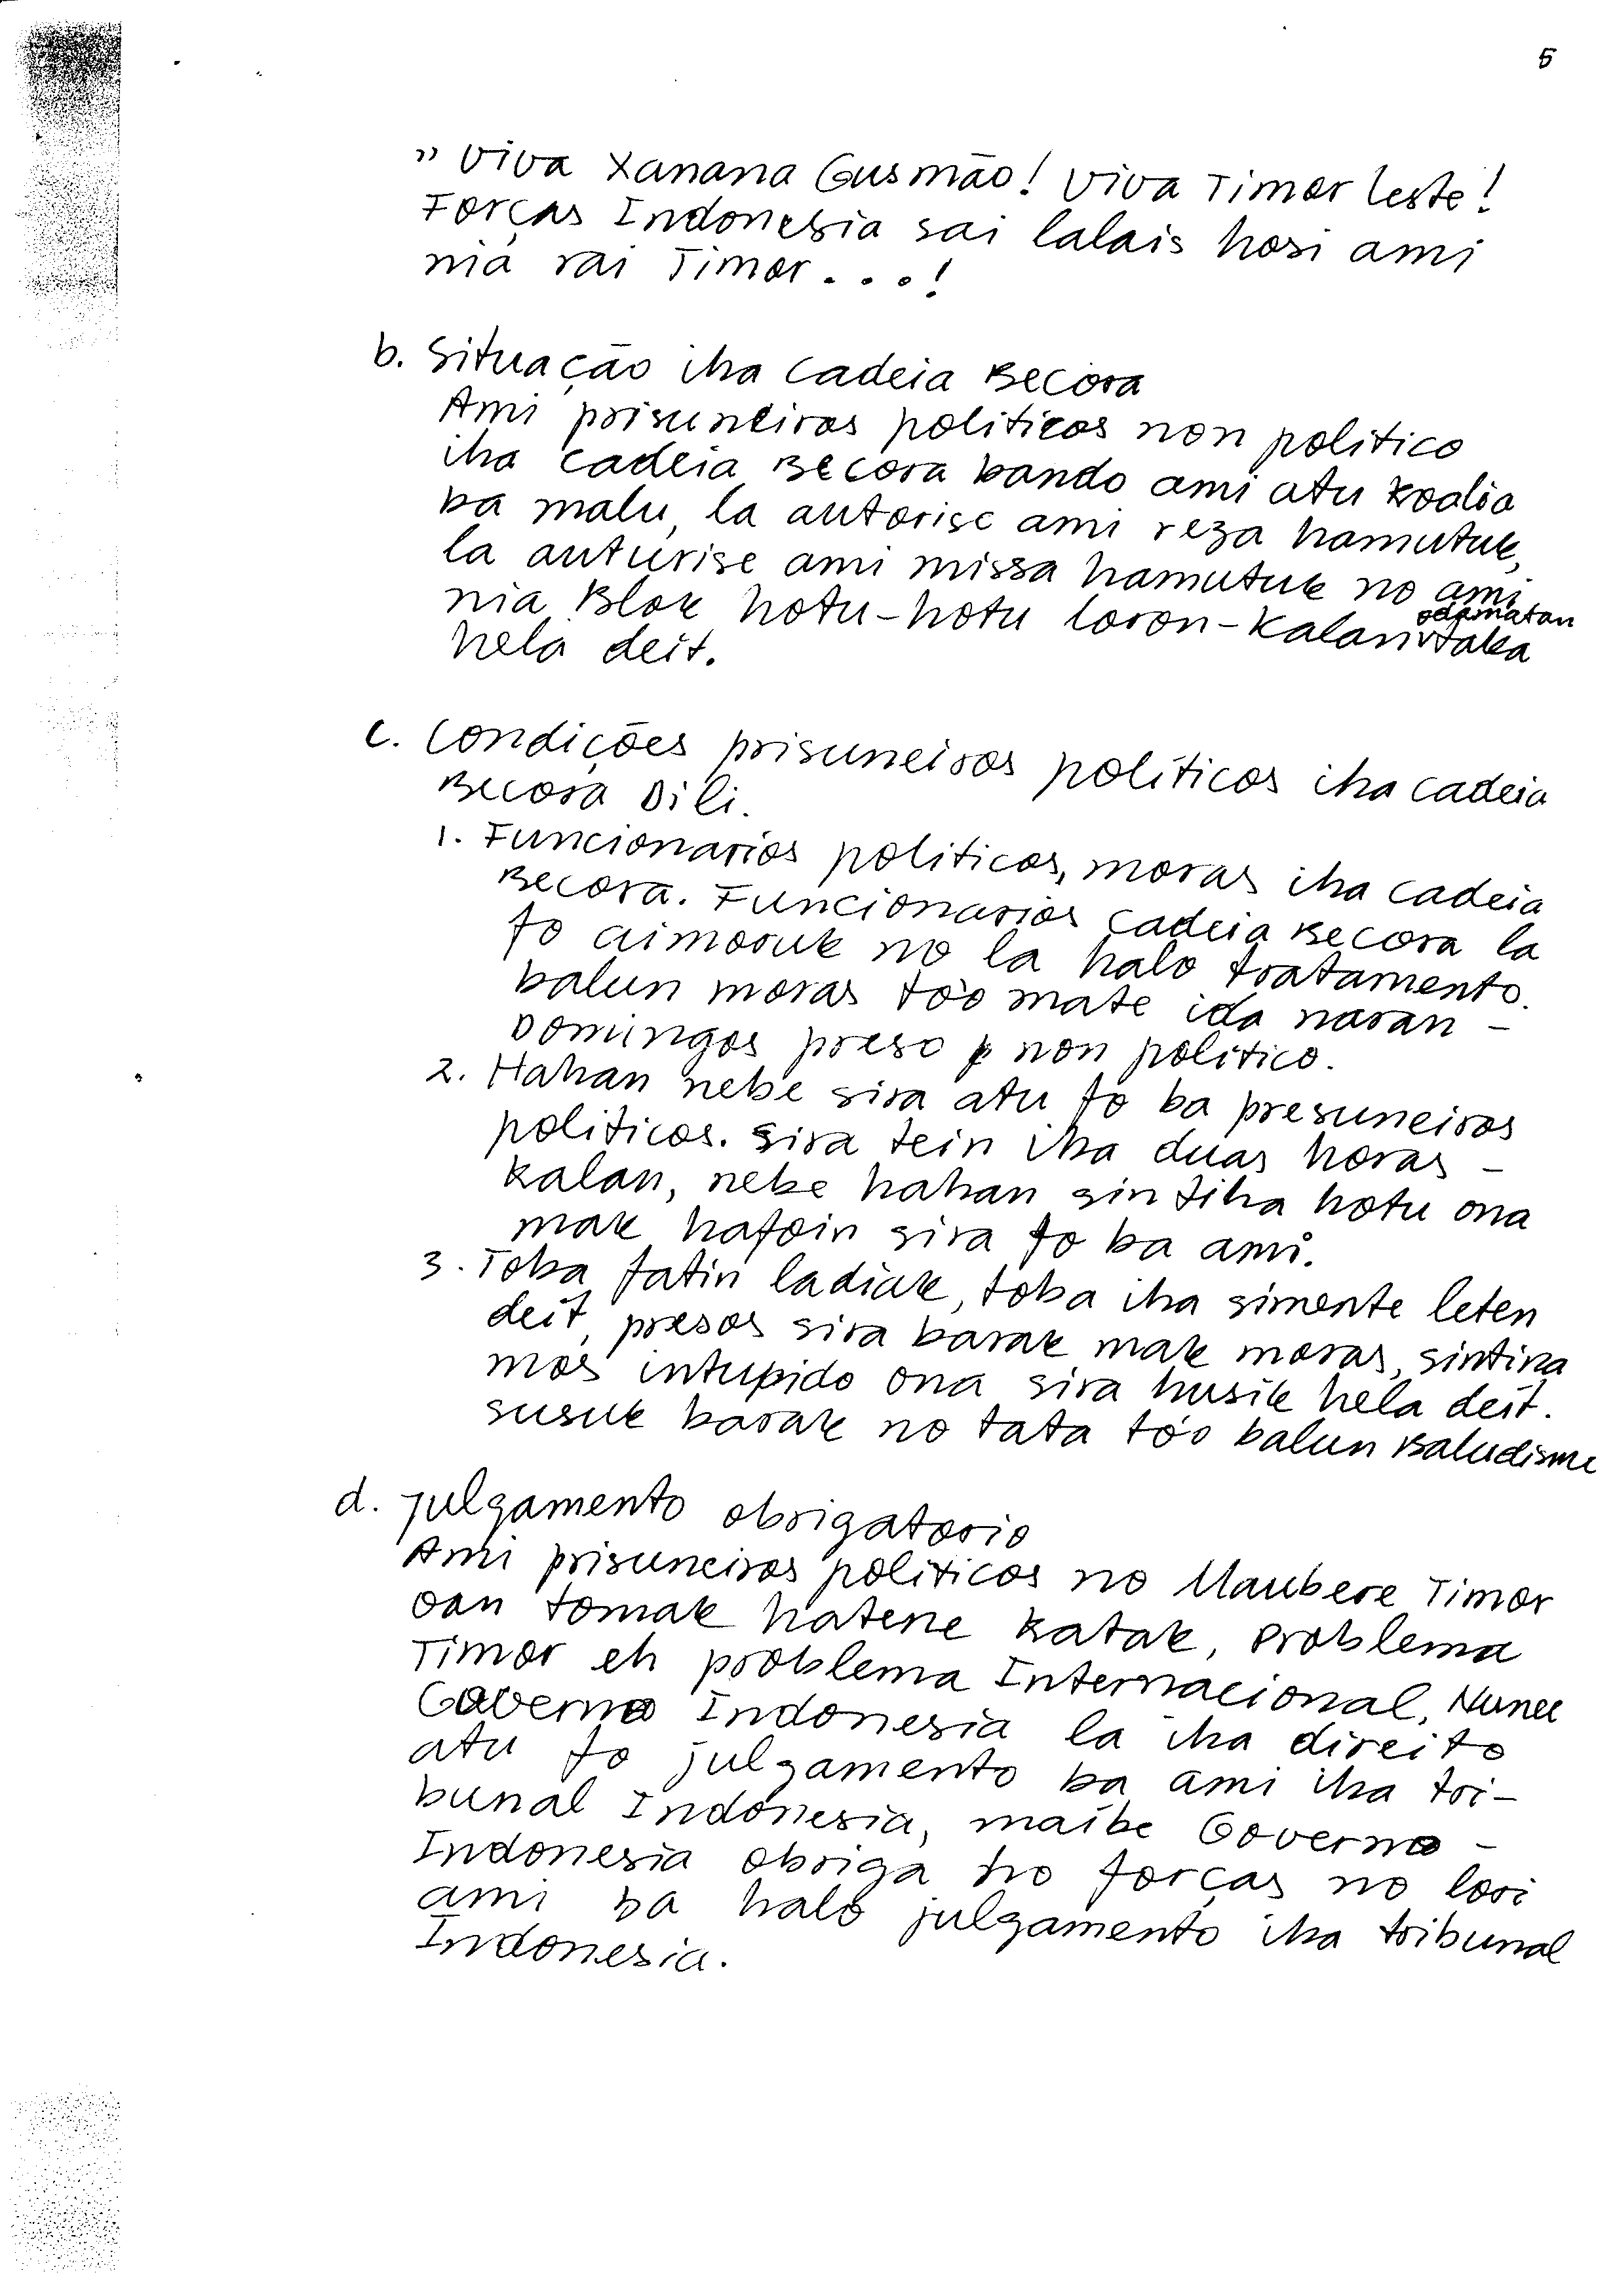 5
" Viva Xanana Gusmão! Viva Timor Leste!
Forças Indonesia sai lalais hosi ami
nia rai Timor . . . !
b. Situação iha Cadeia Becora
Ami prisuneiros politicos non politico
iha cadeia Becora bando ami atu koalia
ba malu, la autorise ami reza hamutuk,
la auturise ami missa hamutuk no ami
nia Blok hotu-hotu loron-kalan odamatan taka
hela deit.
c. Condições prisuneiros políticos iha cadeia
Becora Dili.
1. Funcionarios politicos, moras iha cadeia
Becora. Funcionarios cadeia Becora la
fo aimoruk no la halo tratamento.
balun moras to'o mate ida naran -
Domingos preso non politico.
2. Hahan nebe sira atu fo ba presuneiros
politicos. sira tein iha duas horas -
kalan, nebe hahan sin tiha hotu ona
mak hafoin sira fo ba ami.
3. Toba fatin ladiak, toba iha simente leten
deit, presos sira barak mak moras, sintina
mos intupido ona sira husik hela deit.
susuk barak no tata to'o balun Baludisme
d. julgamento obrigatorio
Ami prisuneiros politicos no Maubere Timor
oan tomak hatene katak, Problema
Timor eh problema Internacional, Nunee
Governo Indonesia la iha direito
atu fo julgamento ba ami iha tri-
bunal Indonesia, maibe Governo -
Indonesia obriga ho forças no lori
ami ba halo julgamento iha tribunal
Indonesia.